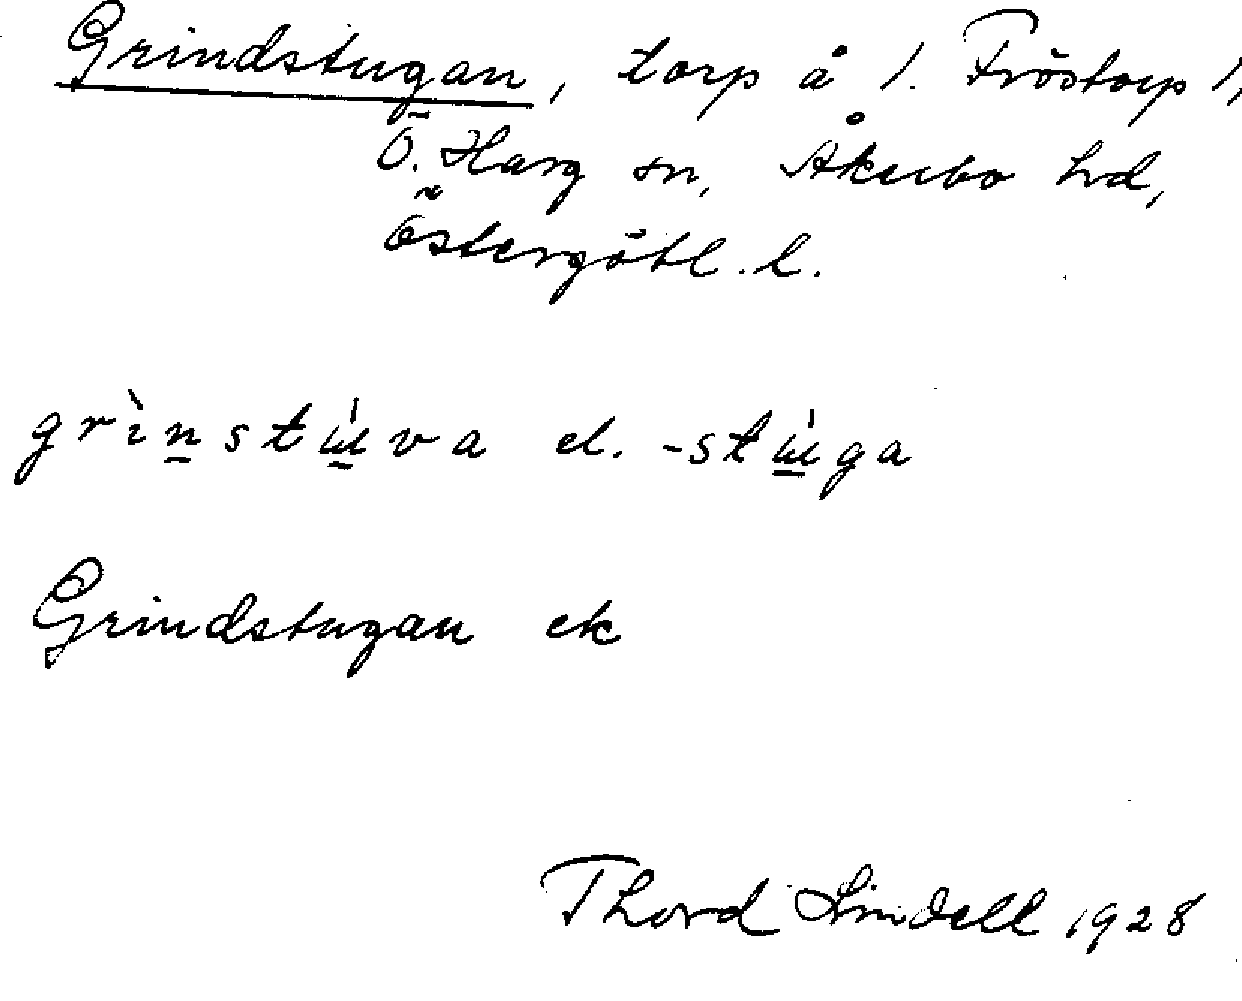 Grindstugan, torp å 1. Fröstorp 1,
Ö. Harg sn, Åkerbo hd,
Östergötl. l.
grìn̲stɯ̲́va el. -stɯ̲́ga
Grindstugan ek
Thord Lindell 1928